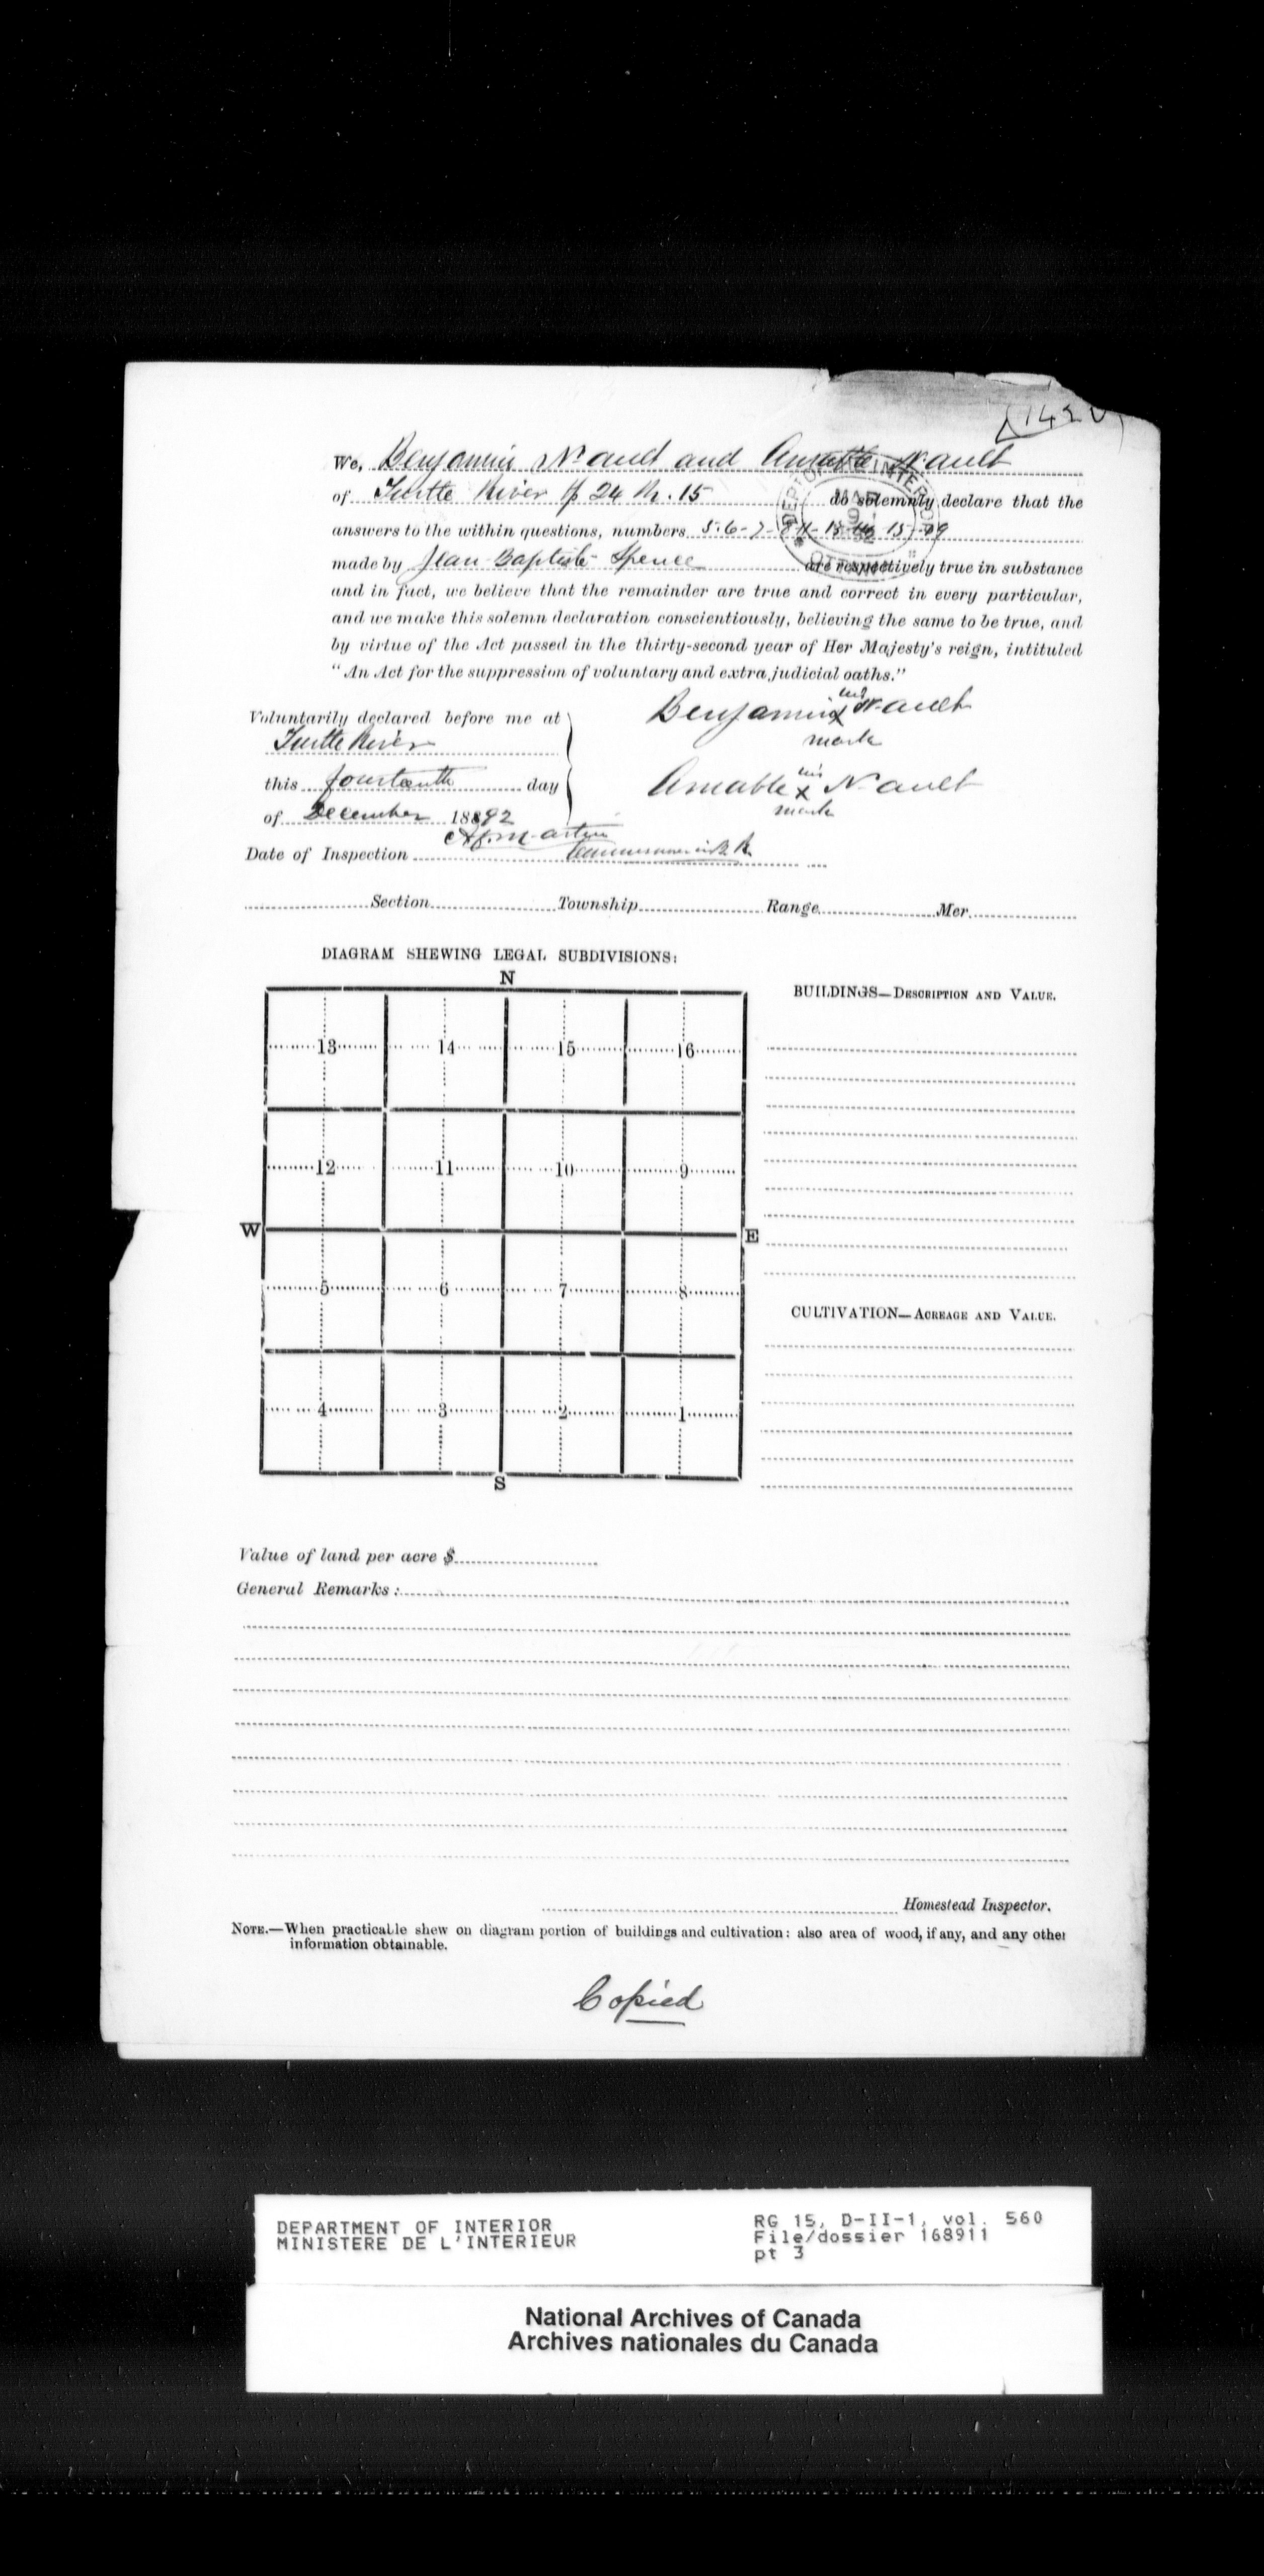 We, Benjamin Nault and Amable Nault
of Turtle River Tp 24 R. 15 do solemnly declare that the
answers to the within questions, numbers 5. 6 - 7 - 8 11 - 13 14 15 - 19
made by Jean Baptiste Spence are respectively true in substance
and in fact, we believe that the remainder are true and correct in every particular,
and we make this solemn declaration conscientiously, believing the same to be true, and
by virtue of the Act passed in the thirty-second year of Her Majesty's reign, intituled
"An Act for the suppression of voluntary and extra judicial oaths."
DEPT OF INTERIOR
MAR
9
OTTAWA
Voluntarily declared before me at
Turtle River
this fourteenth day
of December 1892
Benjamin his x Nault
mark
Amable his x Nault
mark
Martin
Date of Inspection
Section Township Range Mer.
DIAGRAM SHEWING LEGAL SUBDIVISIONS:
N
13 14 15 16
12 11 10 9
W E
5 6 7 8
4 3 2 1
S
BUILDINGS—DESCRIPTION AND VALUE.
CULTIVATION—ACREAGE AND VALUE.
Value of land per acre $
General Remarks:
Homestead Inspector.
NOTE.—When practicable shew on diagram portion of buildings and cultivation: also area of wood, if any, and any other
information obtainable.
Copied
DEPARTMENT OF INTERIOR
MINISTERE DE L'INTERIEUR
RG 15, D-II-1, vol. 560
File/dossier 168911
pt 3
National Archives of Canada
Archives nationales du Canada